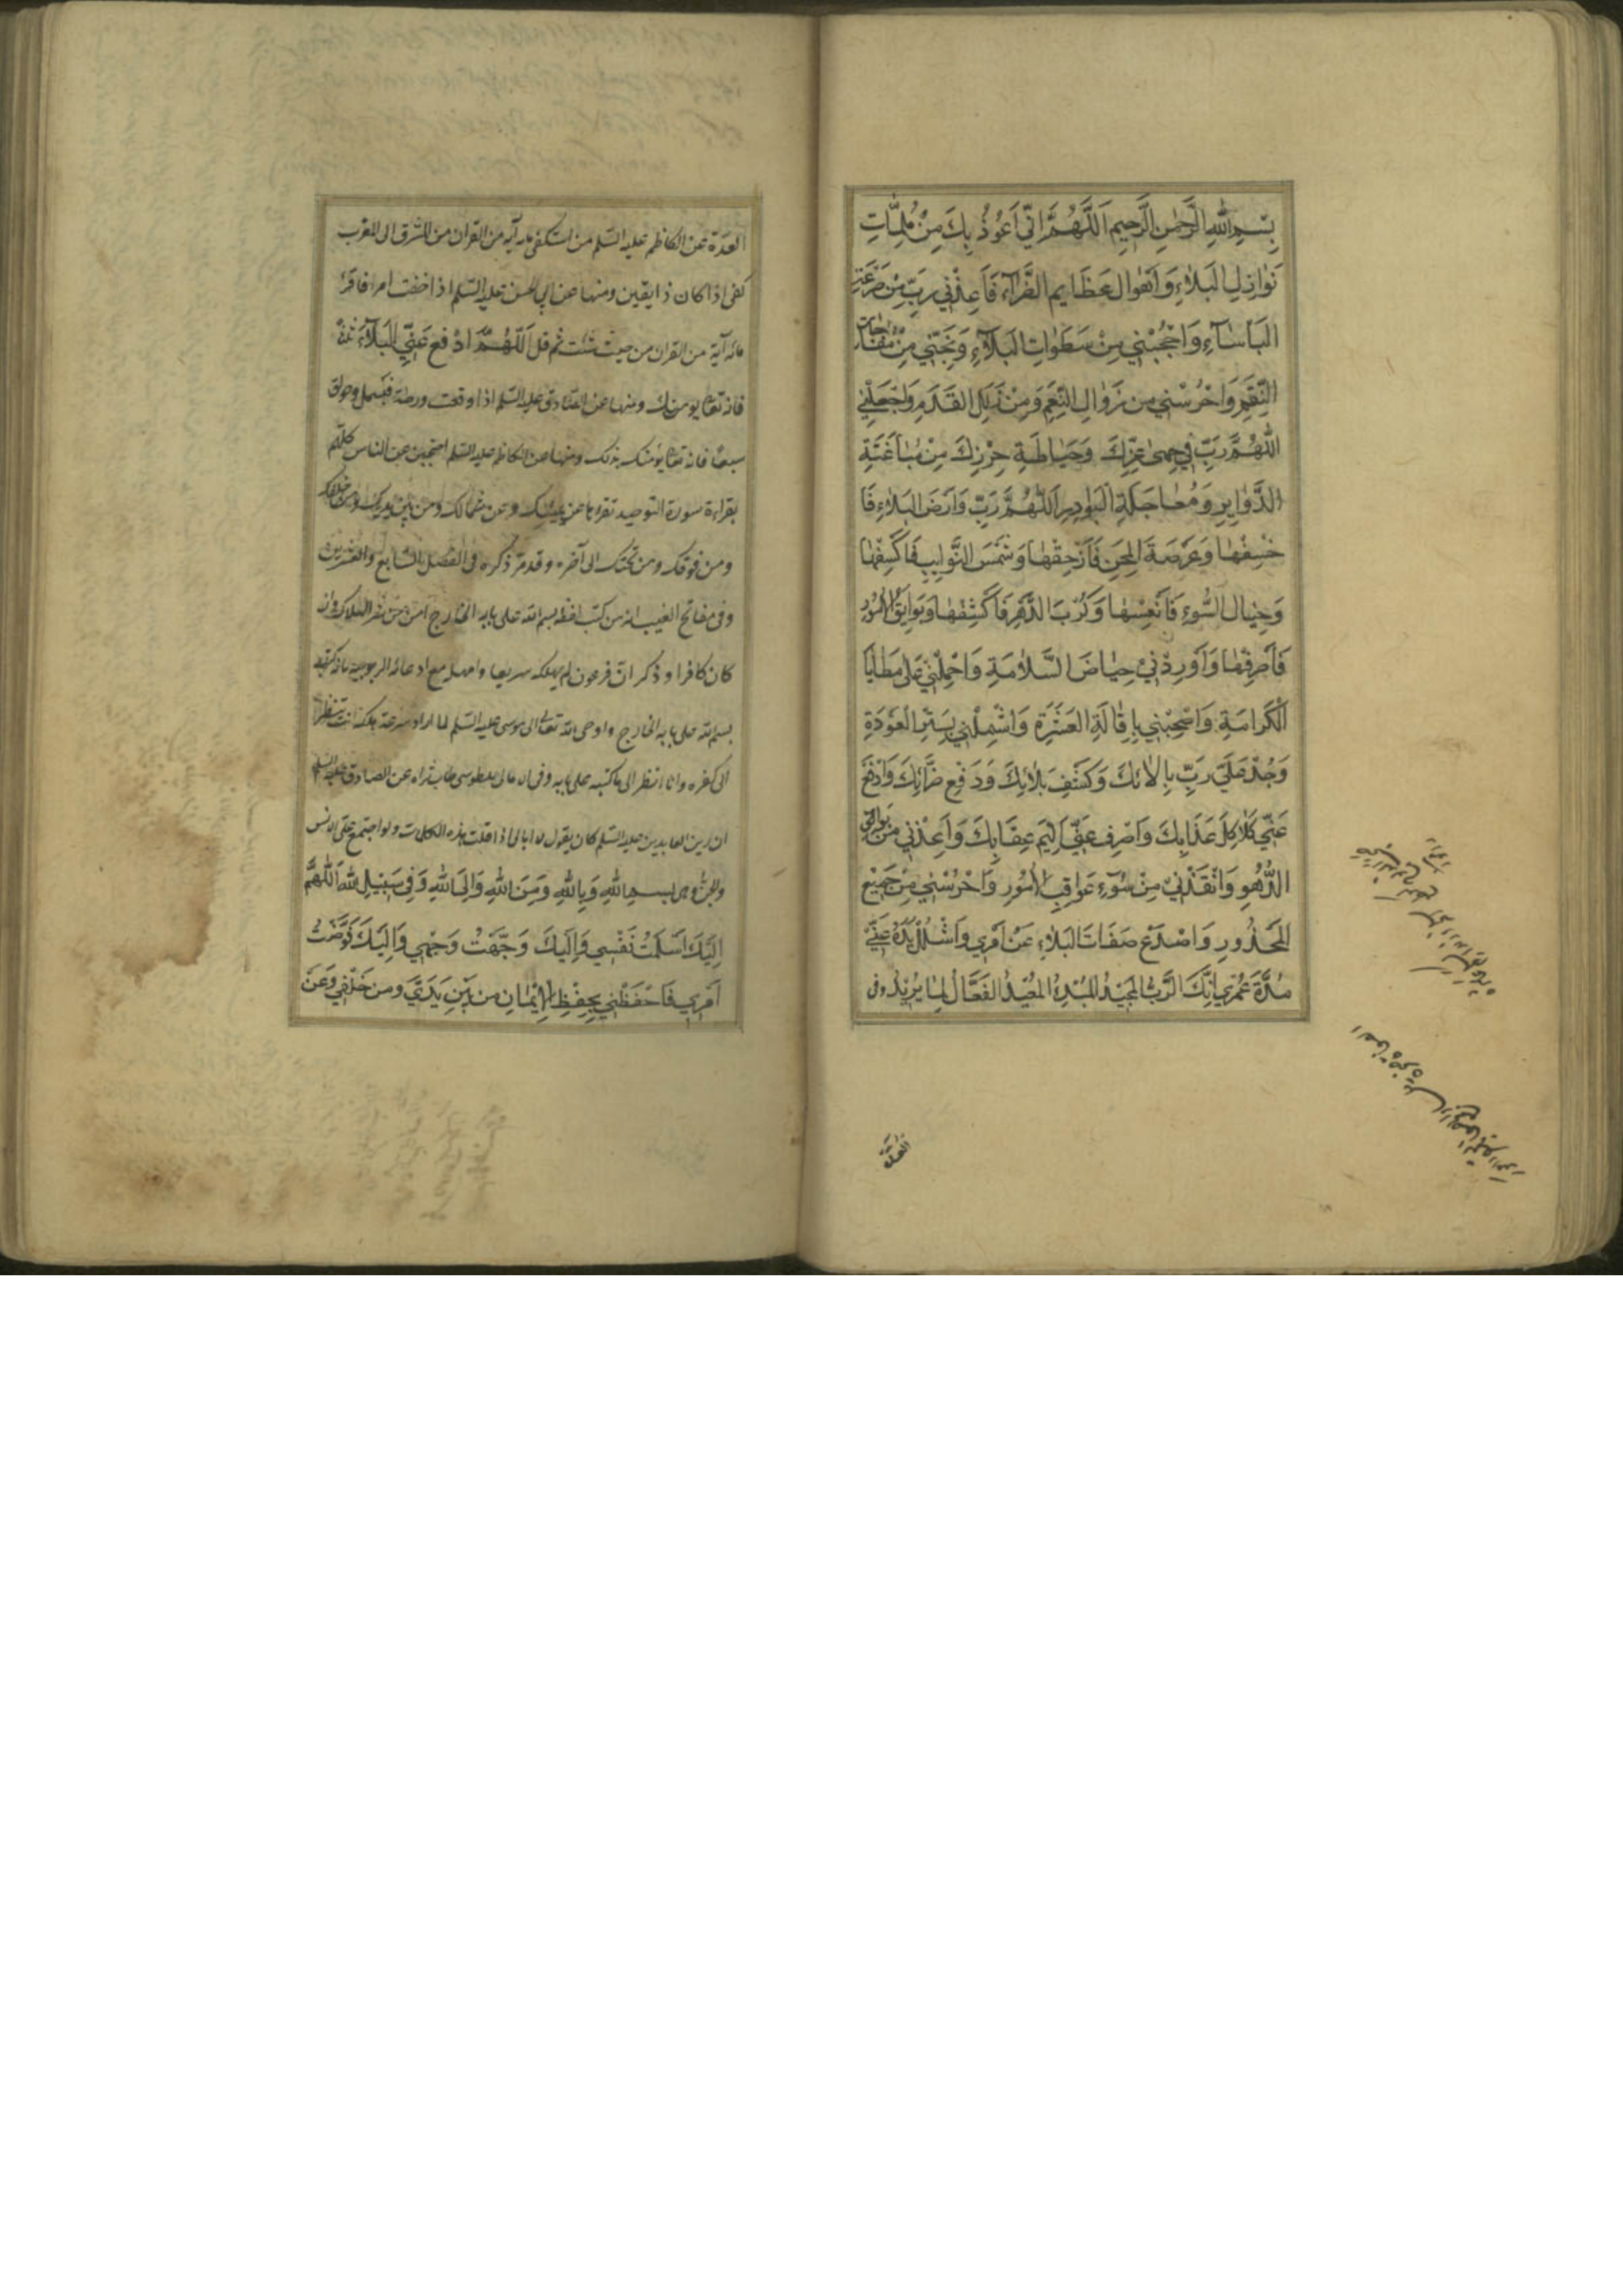 بِسْمِ اللهِ الرَّحْمٰنِ الرَّحِيمِ اَللَّهُمَّ اِنِّي اَعُوذُ بِكَ مِنْ مُلِمَّاتِ
نَوَازِلِ الْبَلَاءِ وَاَهْوَالِ عَظَايِمِ الضَّرَّاءِ فَاَعِذْنِي رَبِّ مِنْ صَرْعَةِ
الْبَأْسَاءِ وَاحْجُبْنِي مِنْ سَطَوَاتِ الْبَلَاءِ وَنَجِّنِي مِنْ مُفَاجَاتِ
النِّقَمِ وَاحْرُسْنِي مِنْ زَوَالِ النِّعَمِ وَمِنْ زَلَلِ الْقَدَمِ وَاجْعَلْنِي
اللّٰهُمَّ رَبِّ فِي حِمىٰ عِزِّكَ وَحِيَاطَةِ حِرْزِكَ مِنْ مُبَاغَتَةِ
الدَّوَايِرِ وَمُعَاجَلَةِ الْبَوَادِرِ اَللّٰهُمَّ رَبِّ وَاَرْضَ الْبَلَاءِ فَا
خْسِفْهَا وَعَرْصَةَ الْمِحَنِ فَارْجِفْهَا وَشَمْسَ النَّوَايِبِ فَاكْسِفْهَا
وَجِبَالَ السُّوءِ فَانْسِفْهَا وَكُرَبَ الدَّهْرِ فَاكْشِفْهَا وَعَوَايِقَ الْاُمُورِ
فَاصْرِفْهَا وَاَوْرِدْنِي حِيَاضَ السَّلَامَةِ وَاحْمِلْنِي عَلَى مَطَايَا
الْكَرَامَةِ وَاصْحَبْنِي بِاِقَالَةِ الْعَثْرَةِ وَاشْمِلْنِي بِسَتْرِ الْعَوْرَةِ
وَجُدْ عَلَيَّ رَبِّ بِاٰلَائِكَ وَكَشْفِ بَلَائِكَ وَدَفْعِ ضَرَّائِكَ وَادْفَعْ
عَنِّي كَلَاكِلَ عَذَابِكَ وَاصْرِفْ عَنِّي اَلِيمَ عِقَابِكَ وَاَعِذْنِي مِنْ بَوَائِقِ
الدُّهُورِ وَاَنْقِذْنِي مِنْ سُوءِ عَوَاقِبِ الْاُمُورِ وَاحْرُسْنِي مِنْ جَمِيعِ
الْمَحْذُورِ وَاصْدَعْ صَفَاتَ الْبَلَاءِ عَنْ اَمْرِي وَاشْلُلْ يَدَهُ عَنِّي
مُدَّةَ عُمْرِي اِنَّكَ الرَّبُّ الْمَجِيدُ الْمُبْدِئُ الْمُعِيدُ الْفَعَّالُ لِمَا يُرِيدُ وفى
العدة
العدّة عن الكاظم عليه السّلم من استكفى باية من القران من المشرق الى المغرب
كفى اذا كان ذا يقين ومنها عن ابي الحسن عليه السّلم اذا خفت امرا فاقرأ
مائة آية من القران من حيث شئت ثم قل اَللّٰهُمَّ ادْفَعْ عَنِّي الْبَلَاءَ ثلثا
فانه تعالى يؤمنك ومنها عن الصّادق عليه السّلم اذا وقعت ورطة فبسمل وحولق
سبعاً فانه تعالى يؤمنك بذلك ومنها عن الكاظم عليه السّلم احتجبن عن الناس كلّهم
بقراءة سورة التوحيد تقراها عن يمينك وعن شمالك ومن بين يديك ومن خلفك
ومن فوقك ومن تحتك الى آخره وقد مرّ ذكره فى الفصل السّابع والعشرين
وفى مفاتح الغيب انه من كتب لفظة بسم الله على بابه الخارج امن من الهلاك وان
كان كافرا وذكر انّ فرعون لم يهلكه سريعا وامهله مع ادعائه الربوبية بانه كتب
بسم الله على بابه الخارج واوحى الله تعالى الى موسى عليه السّلم لما اراد سرعة هلكه انت تنظر
الى كفره وانا انظر الى ما كتبه على بابه وفى امالى الطوسى طاب ثراه عن الصادق عليه السلم
ان زين العابدين عليه السّلم كان يقول لا ابالى اذا قلت هذه الكلمات ولو اجتمع علىّ الانس
والجنّ وهى بسم اللهِ وَبِاللهِ وَمِنَ اللهِ وَاِلَى اللهِ وَفِي سَبِيلِ اللهِ اَللّٰهُمَّ
اِلَيْكَ اَسْلَمْتُ نَفْسِي وَاِلَيْكَ وَجَّهْتُ وَجْهِي وَاِلَيْكَ فَوَّضْتُ
اَمْرِي فَاحْفَظْنِي بِحِفْظِ الْاِيْمَانِ مِنْ بَيْنِ يَدَيَّ وَمِنْ خَلْفِي وَعَنْ